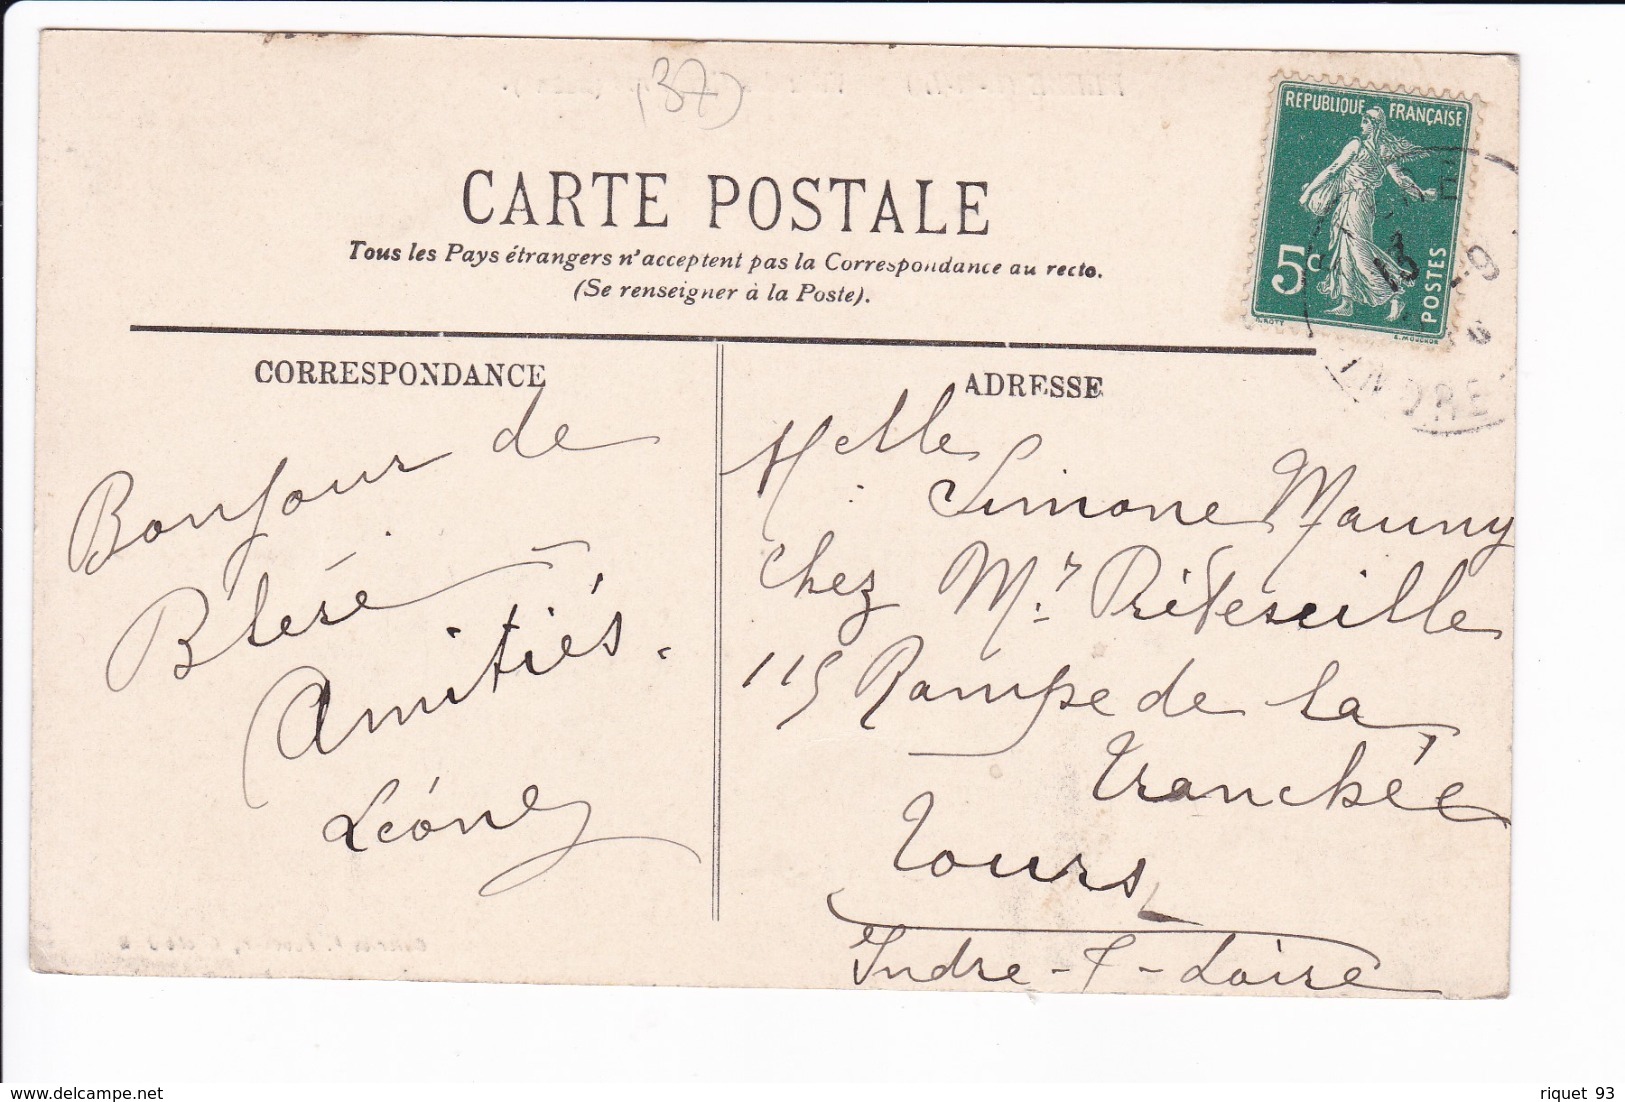 (37)
REPUBLIQUE FRANÇAISE
5c
POSTES
CARTE POSTALE
Tous les Pays étrangers n'acceptent pas la Correspondance au recto.
(Se renseigner à la Poste).
13
INDRE
CORRESPONDANCE
Bonjour de
Bléré
Amitiés.
Léone
ADRESSE
Melle
Simone Mauny
Chez Mr.
115 Rampe de la
Tranchée
Tours
Indre-&-Loire
riquet 93